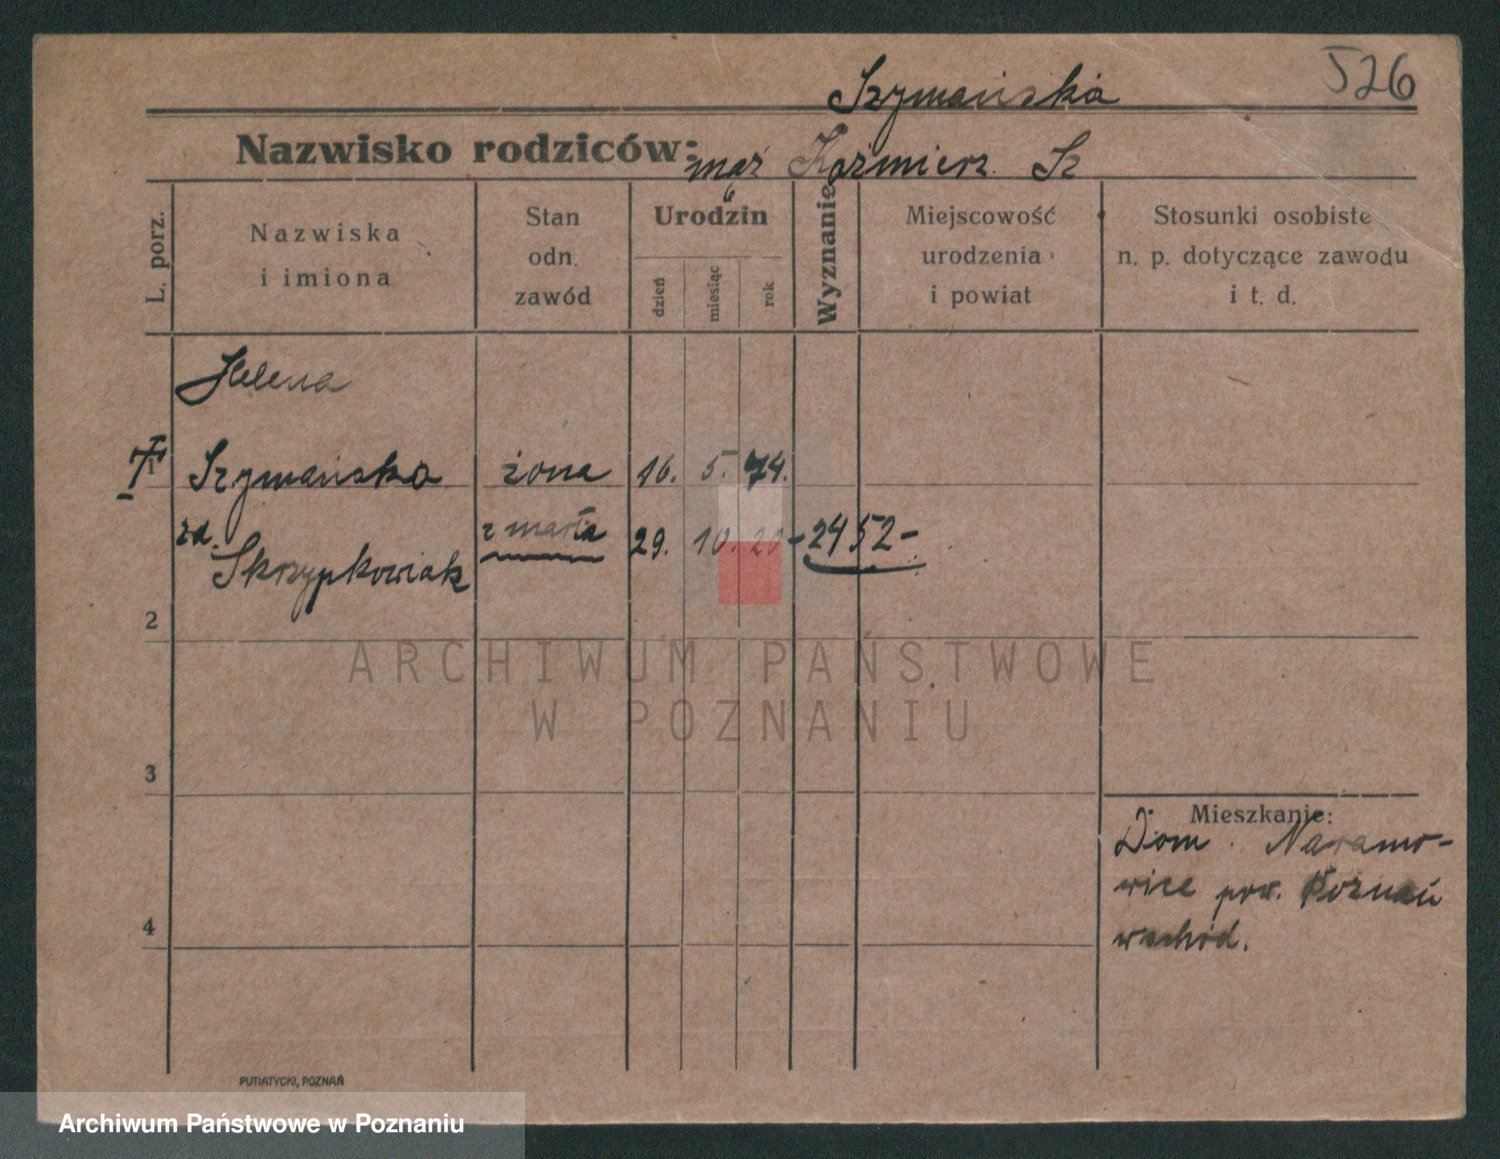 Szymańska
526
Nazwisko rodziców: mąż Kaźmierz Sz
L. porz.
Nazwiska
i imiona
Stan
odn.
zawód
Urodzin
dzień
miesiąc
rok
Wyznanie
Miejscowość
urodzenia
i powiat
Stosunki osobiste
n. p. dotyczące zawodu
i t. d.
Helena
1 Szymańska żona 16. 5. 74.
zd. zmarła 29. 10. 20 - 2452-
Skrzypkowiak
2
ARCHIWUM PAŃSTWOWE
W POZNANIU
3
Mieszkanie:
Dom. Naramo-
wice pow. Poznań
wschód.
4
PUTIATYCKI, POZNAŃ
Archiwum Państwowe w Poznaniu